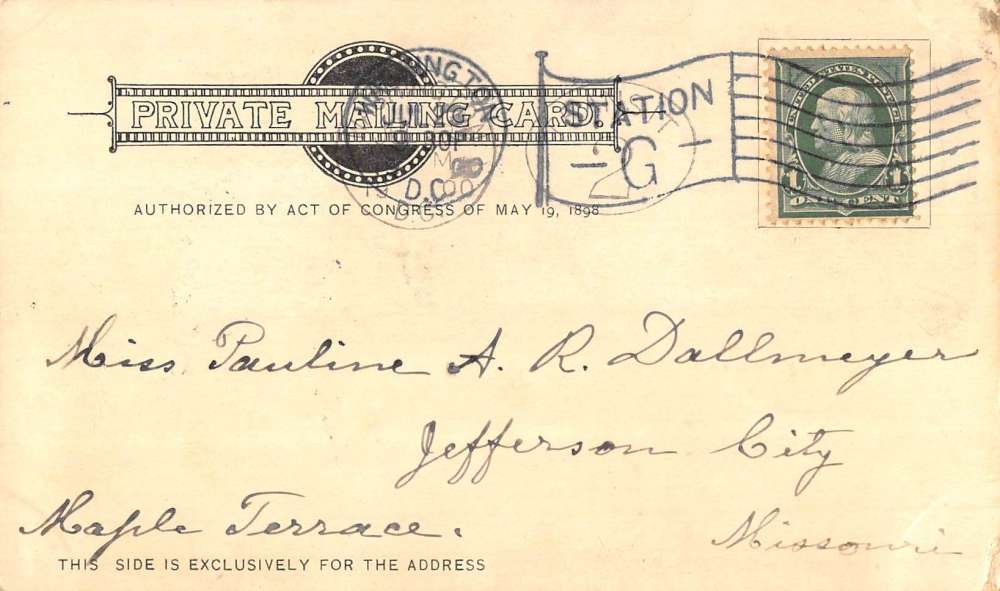 PRIVATE MAILING CARD.
AUTHORIZED BY ACT OF CONGRESS OF MAY 19, 1898
WASHINGTON
D.C.
STATION
G
2
UNITED STATES POSTAGE
1 1
ONE CENT
Miss Pauline A. R. Dallmeyer
Jefferson City
Maple Terrace.
Missouri
THIS SIDE IS EXCLUSIVELY FOR THE ADDRESS